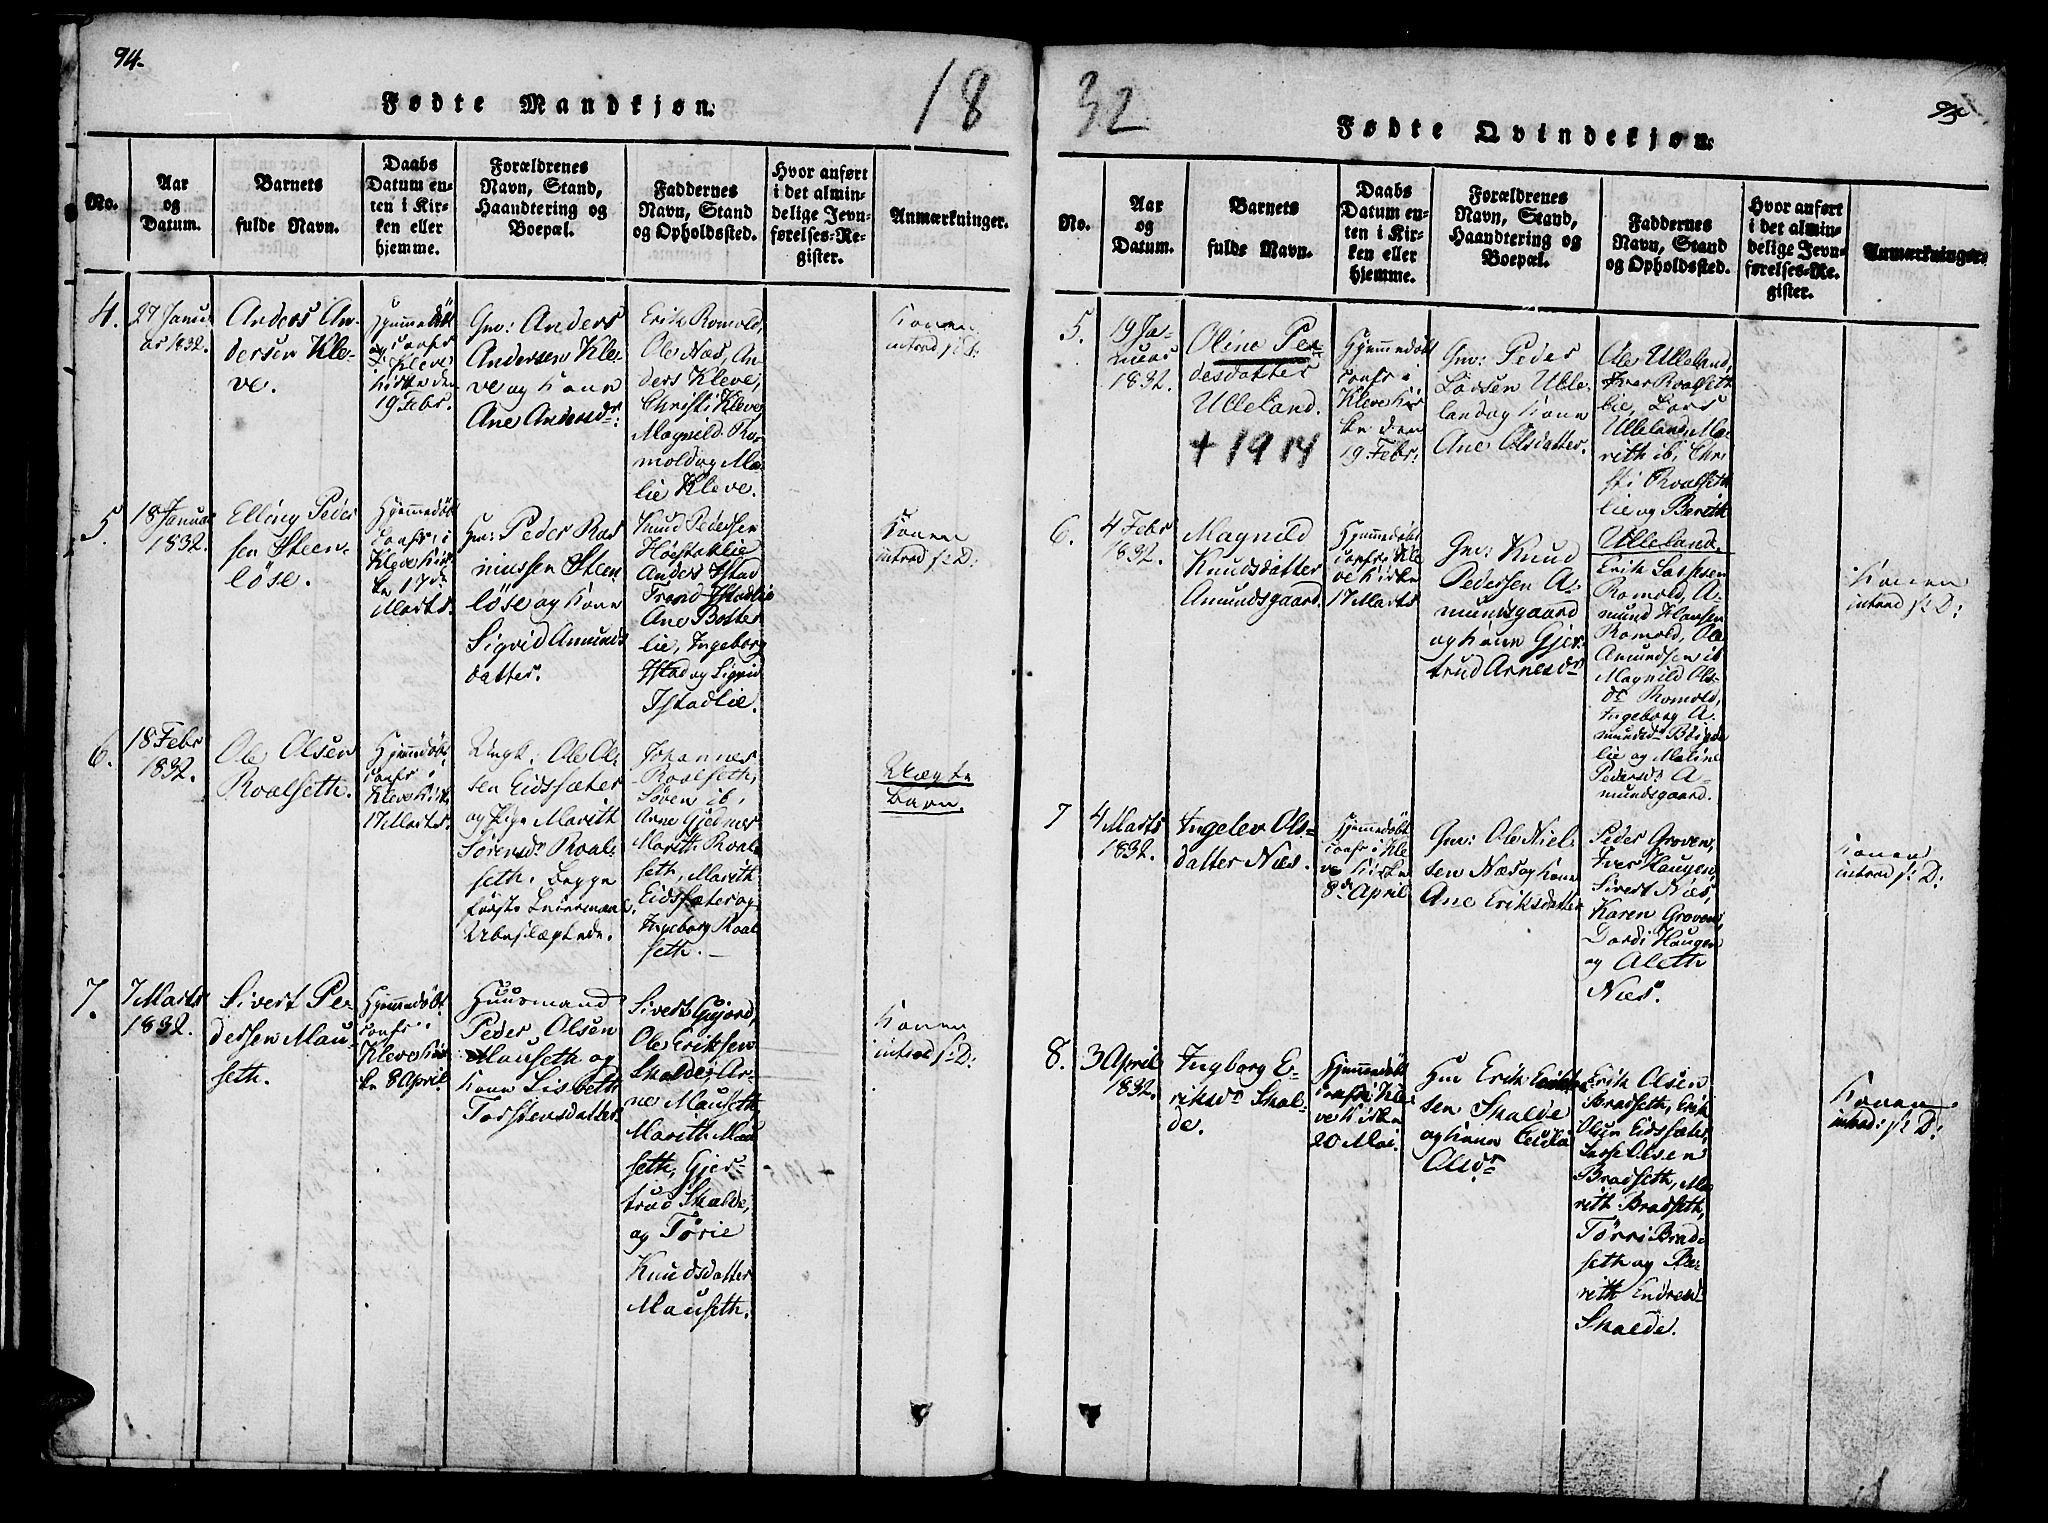 94.
Fødte Mandkjøn.
18
No.
Aar
og
Datum.
Barnets
fulde Navn.
Daabs
Datum en-
ten i Kir-
ken eller
hjemme.
Forældrenes
Navn, Stand,
Haandtering og
Boepæl.
Faddernes
Navn, Stand
og Opholdssted.
Hvor anført
i det almin-
delige Jevn-
førelses-Re-
gister.
Anmærkninger.
4.
27 Janu
ar 1832.
Anders An-
dersen Kle-
ve.
Hjemmedöbt
confr
i Kleve
Kirke den
19 Febr.
Gm: Anders
Andersen Kle-
ve og Kone
Ane Andersdr:
Erik Romold,
Ole Næs, An-
ders Kleve,
Christi Kleve
Magnild Ro-
mold og Ma-
lie Kleve.
Konen
introd f: D:
5.
18 Januar
1832.
Elling Peder
sen Steen-
löse.
Hjemmedöbt
confr: i
Kleve Kir-
ke 17de
Marts.
Gm: Peder Ras
mussen Steen
löse og Kone
Sigrid Amunds
datter.
Knud Pedersen
Høstadlie
Anders Istad
Trond Istadlie
Ane Botter
lie, Ingeborg
Istad og Sigrid
Istadlie.
Konen
introd f: D:
6.
18 Febr
1832.
Ole Olsen
Roalseth.
Hjemmedöbt
confr i
Kleve Kirke
17 Marts.
Ungk: Ole Ol-
sen Eidssæter
og Pige Marith
Sörensdr Roal-
seth, begge
første Leiermaal
Ubeslægtede.
Johannes
Roalseth,
Sören ib,
Arne Gjednes
Marith Roal
seth, Marith
Eidssæter og
Ingeborg Roal
seth.
Uægte
Barn.
7.
7 Marts
1832.
Sivert Pe-
dersen Mau-
seth.
Hjemmedöbt.
confr i
Kleve Kir-
ke 8 April
Huusmand
Peder Olsen
Mauseth og
Kone Lisbeth
Torstensdatter
Sivert Gujord,
Ole Eriksen
Skalde, Ar-
ne Mauseth,
Marith Mau
seth, Gjer-
trud Skalde,
og Törie
Knudsdatter
Mauseth.
Konen
introd f: D:
32
Fødte Qvindekjøn.
No.
Aar
og
Datum.
Barnets
fulde Navn.
Daabs
Datum en-
ten i Kir-
ken eller
hjemme.
Forældrenes
Navn, Stand,
Haandtering og
Boepæl.
Faddernes
Navn, Stand
og Opholdssted.
Hvor anført
i det almin-
delige Jevn-
førelses-Re-
gister.
Anmærkninger.
5.
19 Ja-
nuar
1832.
Oline Pe-
dersdatter
Ulleland.
+ 1914
Hjemmedöbt
confr i
Kleve Kir
ke den
19 Febr.
Gm: Peder
Larsen Ulle-
land og Kone
Ane Olsdatter.
Ole Ulleland,
Iver Roalseth
lie, Lars
Ulleland, Ma-
rith ib, Chri
sti Roalseth
lie og Berith
Ulleland.
6.
4 Febr
1832.
Magnild
Knudsdatter
Amundsgaard.
Hjemmedöbt
confr i Kle
ve Kirke
17 Marts
Gm: Knud
Pedersen A-
mundsgaard
og Kone Gjer-
trud Arnesdr
Erik Lassesen
Romold, A-
mund Hansen
Romold, Ole
Amundsen ib
Magnild Ols-
dr Romold,
Ingeborg A-
mundsdr
lie og Maline
Pedersdr A-
mundsgaard.
Konen
introd f: D:
7
4 Marts
1832.
Ingelev Ols-
datter Næs.
Hjemmedöbt
confr i Kle
ve Kirke
8de April
Gm: Ole Niel
sen Næs og Kone
Ane Eriksdatter
Peder Groven,
Iver Haugen,
Sivert Næs,
Karen Groven,
Dordi Haugen
og Aleth
Næs.
Konen
introd f: D:
8.
3 April
1832.
Ingborg E-
riksdr Skal-
de.
Hjemmedöbt
confr i Kle
ve Kirke
20 Mai.
Gm Erik Erik
sen Skalde
og Kone Cecilia
Olsdr
Erik Olsen
Bradseth, Erik
Olsen Eidssæter,
Lasse Olsen
Bradseth, Ma
rith Bradseth,
Törri Brad-
seth og Be-
rith Endresdr
Skalde.
Konen
introd: f: D: